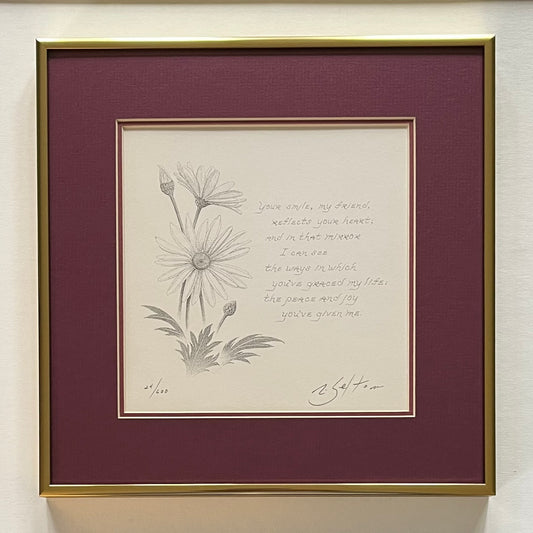 your smile, my friend,
reflects your heart;
and in that mirror
I can see
the ways in which
you've graced my life:
the peace and joy
you've given me.
/600